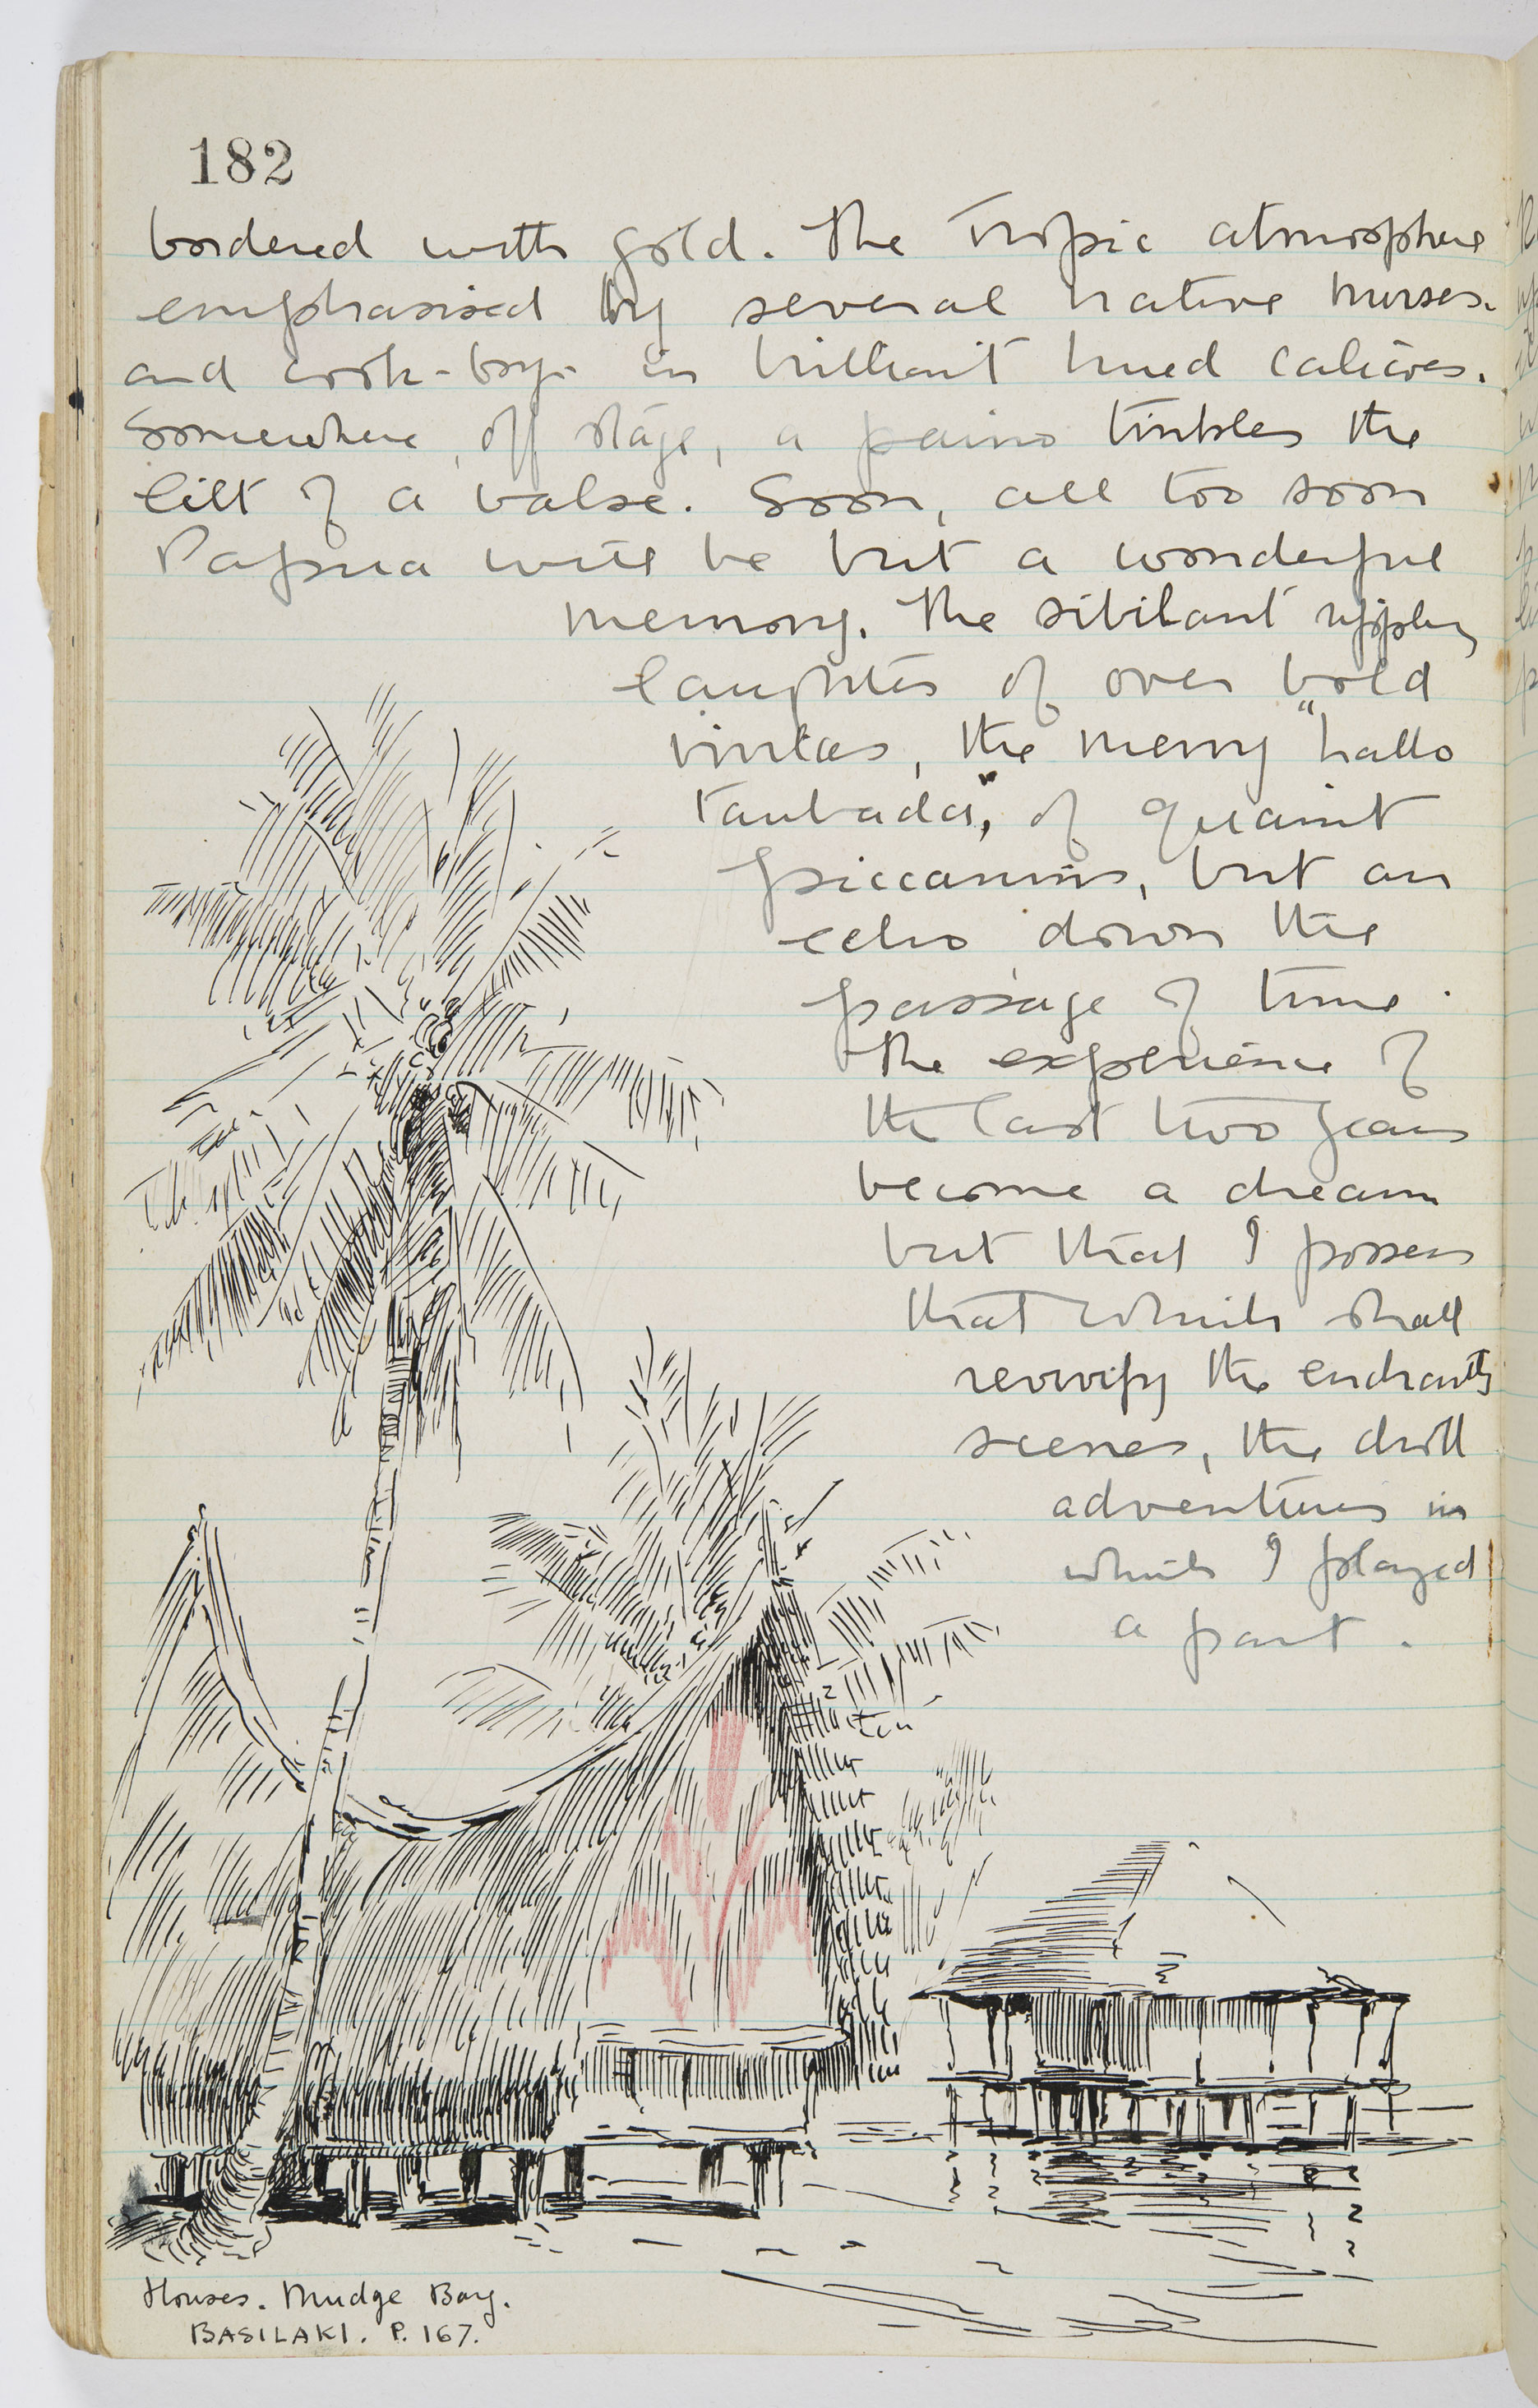 182
bordered with gold. The tropic atmosphere
emphasised by several native nurses.
and cook-boys in brilliant hued calicoes.
Somewhere, off stage, a paino tinkles the
lilt of a valse. Soon, all too soon
Papua will be but a wonderful
memory. The sibilant rippling
laughter of over bold
the merry "hallo
taubada", of quaint
piccanins, but an
echo down the
passage of time.
The experience of
the last two years
become a dream
but that I possess
that which shall
revivify the enchanting
scenes, the droll
adventures in
which I played
a part.
Houses. Mudge Bay.
BASILAKI. P. 167.